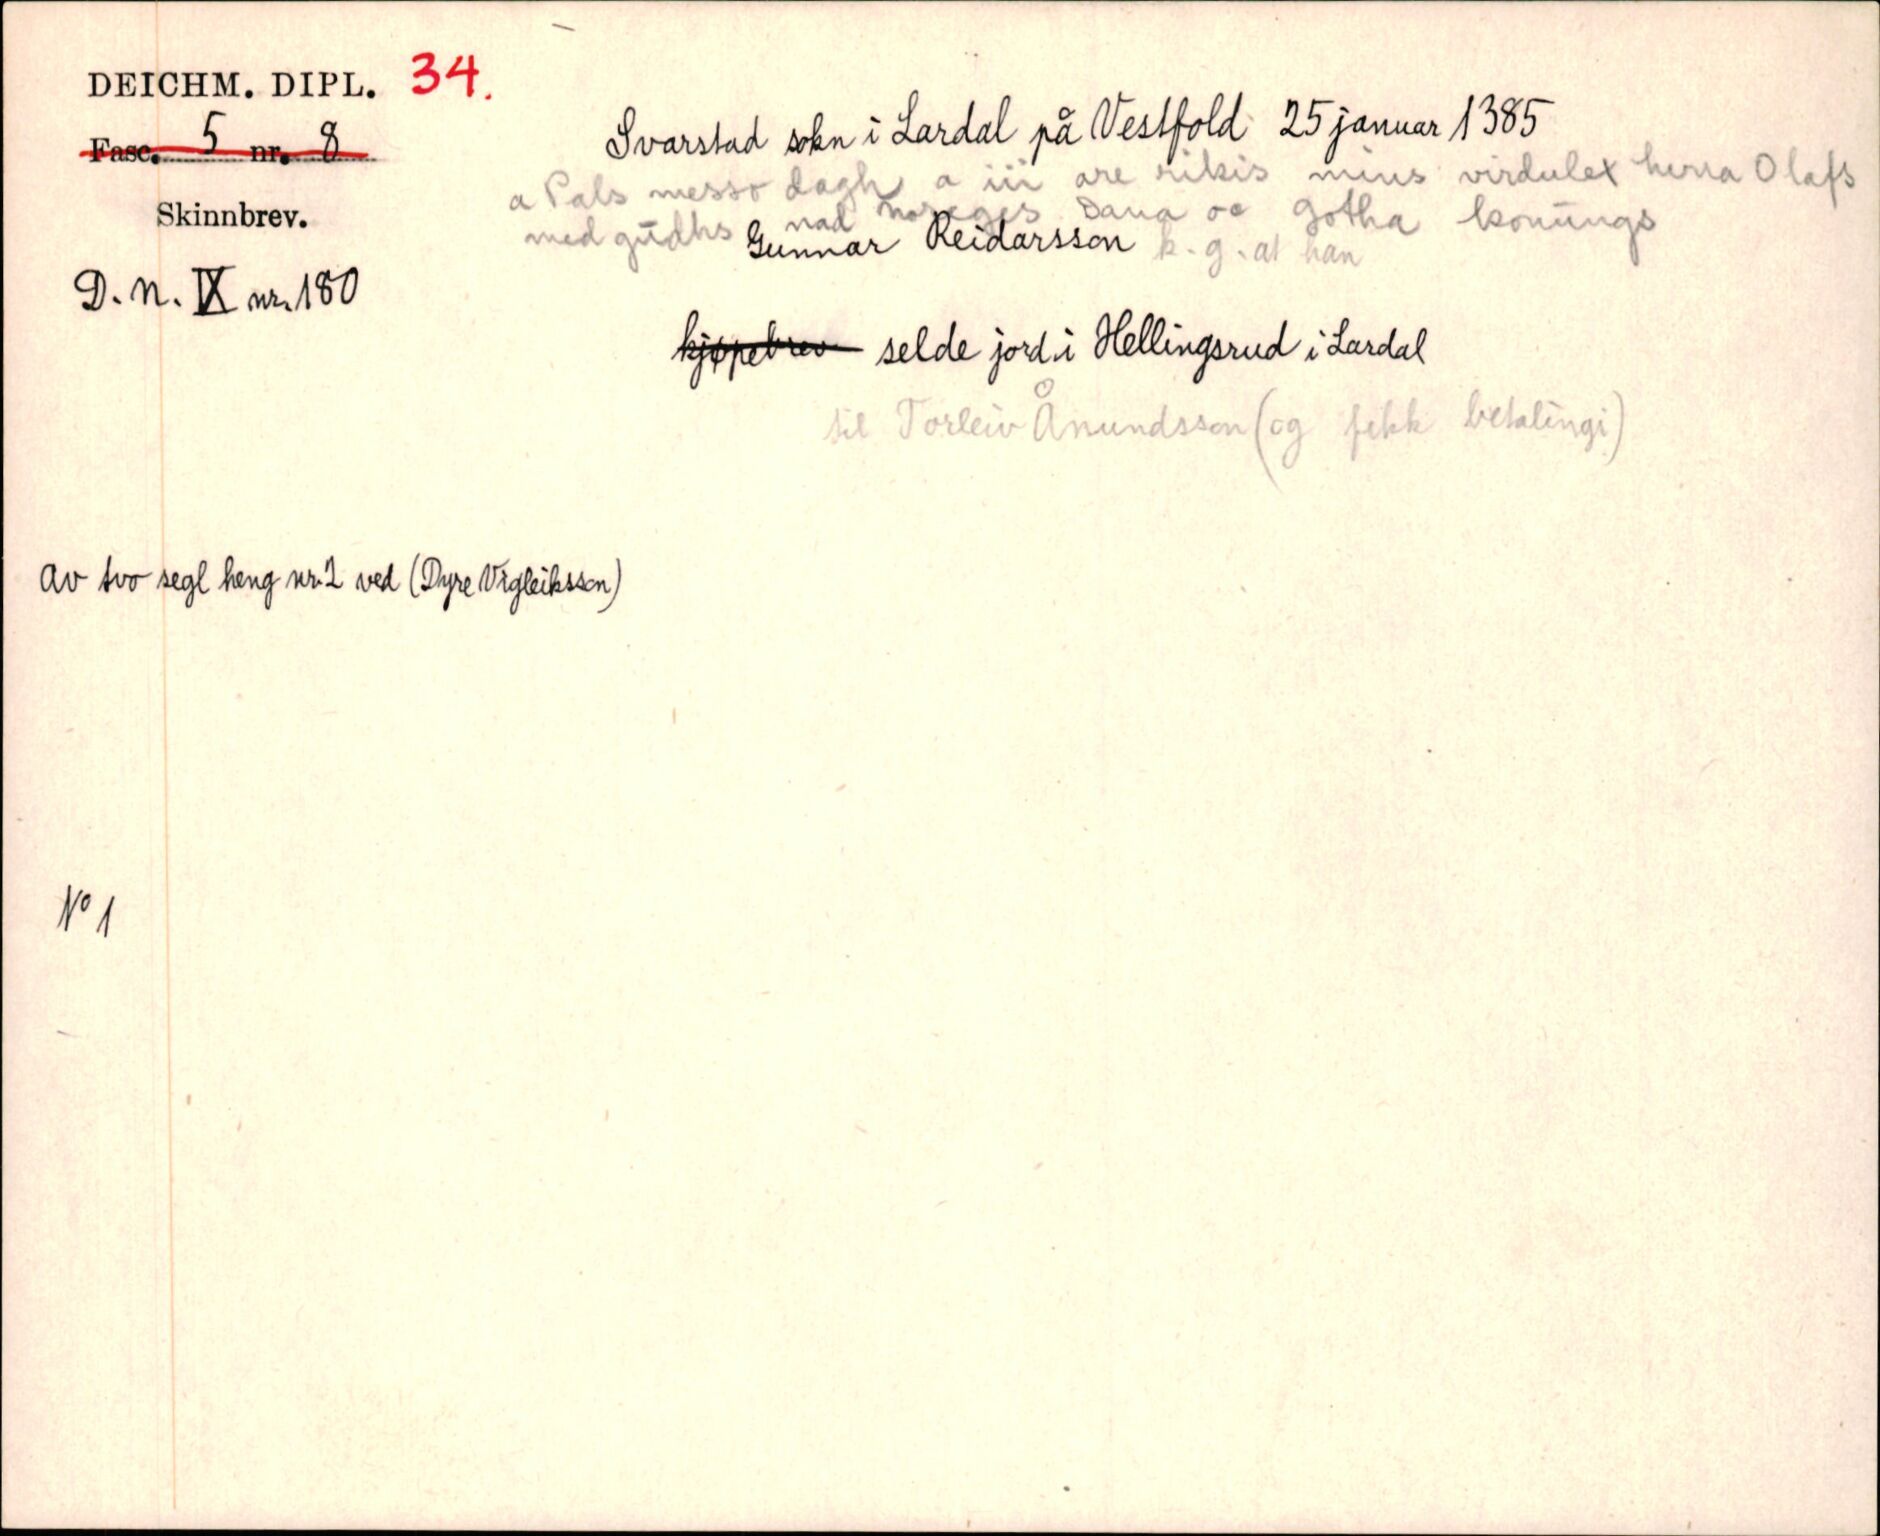 DEICHM. DIPL. 34.
Fasc. 5 nr. 8
Skinnbrev.
D. N. IX nr. 180
Svarstad sokn i Lardal på Vestfold 25 januar 1385
a Pals messo dagh a iii are rikis mins virdulex herra Olafs
med gudhs nad noreges Dana oc Gotha konungs
Gunnar Reidarsson k. g. at han
kjøpebrev selde jord i Hellingsrud i Lardal
til Torleiv Ånundsson (og fekk betalingi)
Av tvo segl heng nr. 2 ved (Dyre Vigleiksson)
No 1